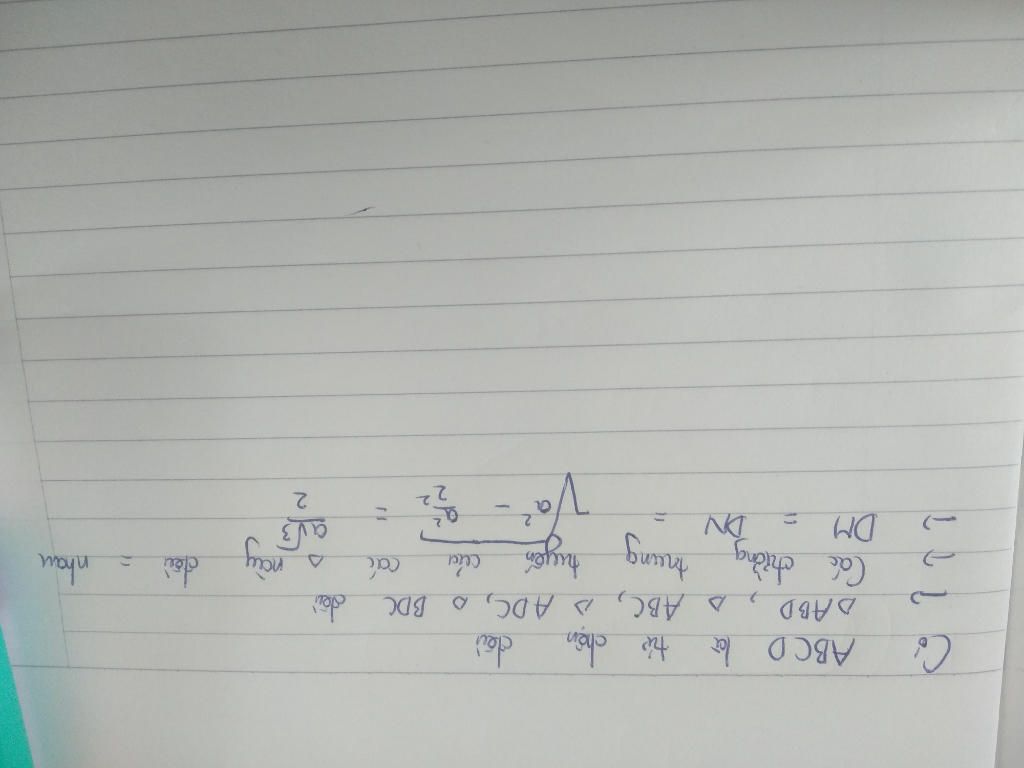 Có ABCD là tứ diện đều
→ △ABD, △ ABC, △ ADC, △ BDC đều
→ Các đường trung tuyến của các △ này đều = nhau
→ DM = DN = √(a² - a²/2²) = a√3/2